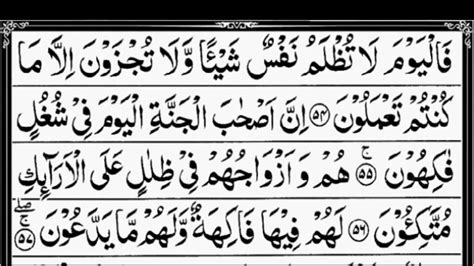 فَالْيَوْمَ لَا تُظْلَمُ نَفْسٌ شَيْئًا وَّلَا تُجْزَوْنَ اِلَّا مَا
كُنْتُمْ تَعْمَلُوْنَ ﴿۵۴﴾ اِنَّ اَصْحٰبَ الْجَنَّةِ الْيَوْمَ فِىْ شُغُلٍ
فٰكِهُوْنَ ۚ﴿۵۵﴾ هُمْ وَاَزْوَاجُهُمْ فِىْ ظِلٰلٍ عَلَى الْاَرَآئِكِ
مُتَّكِئُوْنَ ﴿۵۶﴾ لَهُمْ فِيْهَا فَاكِهَةٌ وَّلَهُمْ مَّا يَدَّعُوْنَ ۚۖ﴿۵۷﴾